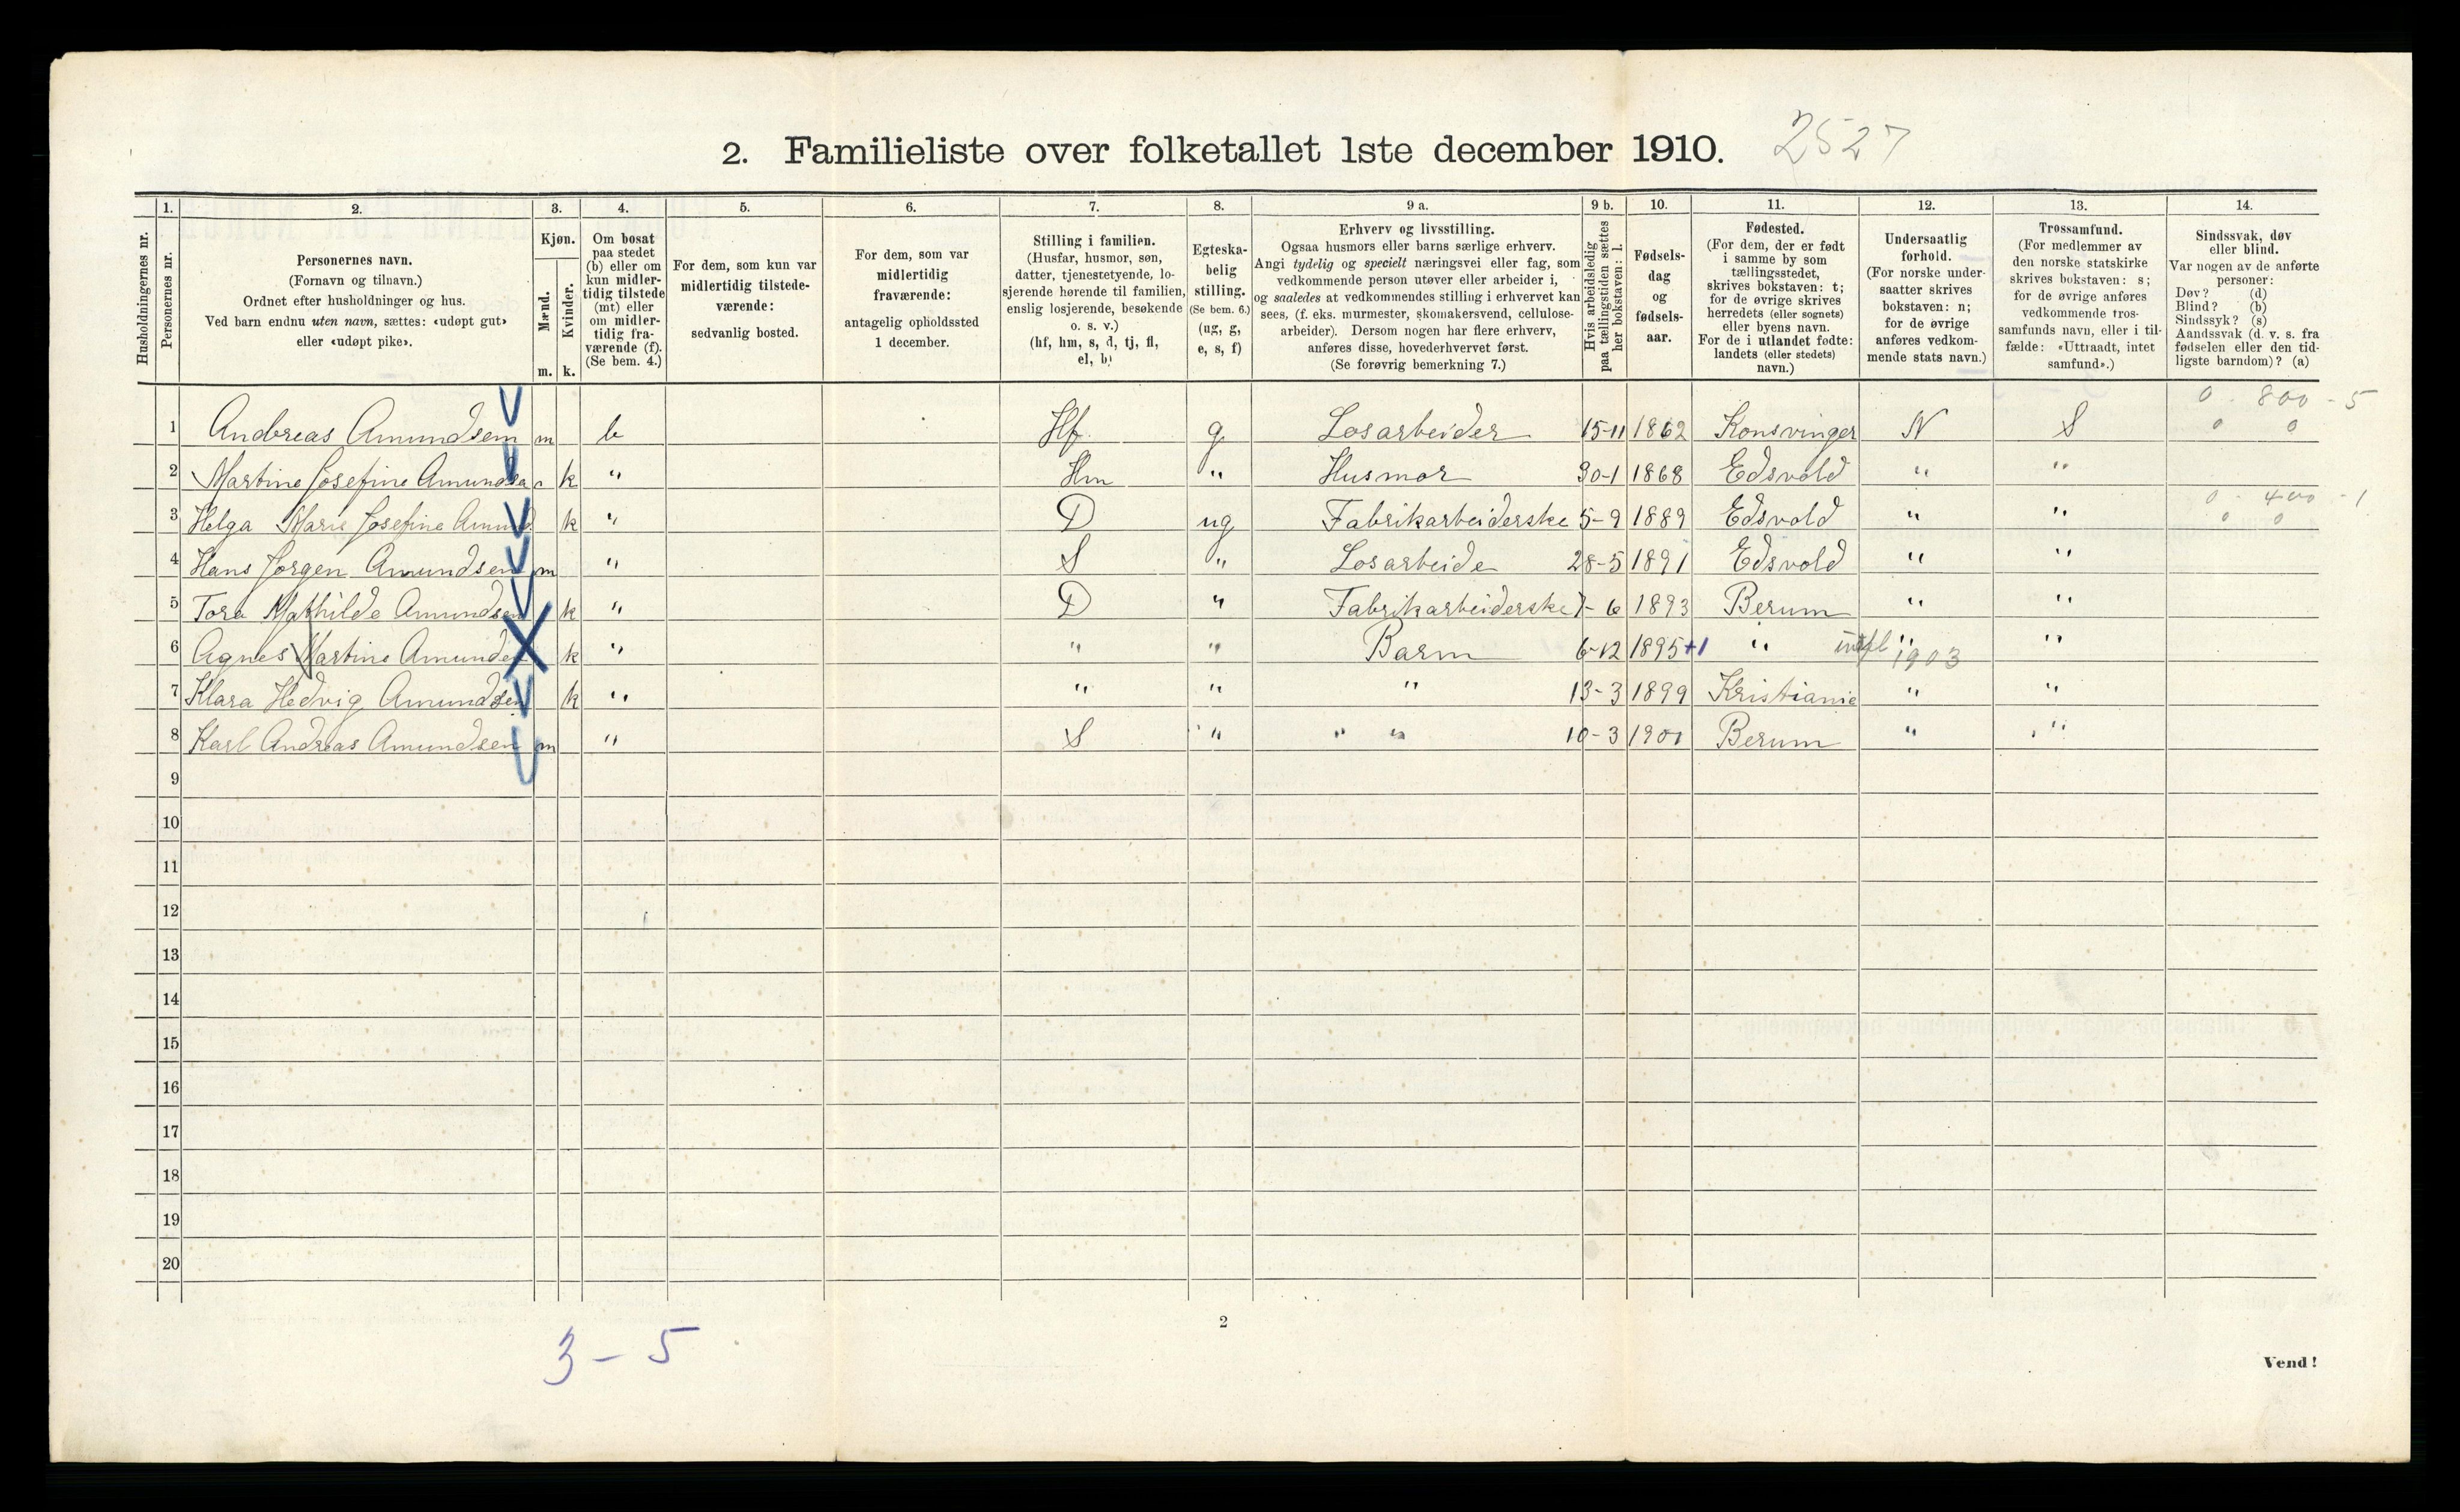 2. Familieliste over folketallet 1ste december 1910. 2527
1. 2. 3. 4. 5. 6. 7. 8. 9 a. 9 b. 10. 11. 12. 13. 14.
Husholdningernes nr.
Personernes nr.
Personernes navn.
(Fornavn og tilnavn.)
Ordnet efter husholdninger og hus.
Ved barn endnu uten navn, sættes: «udøpt gut»
eller «udøpt pike».
Kjøn.
Mænd.
Kvinder.
m. k.
Om bosat
paa stedet
(b) eller om
kun midler-
tidig tilstede
(mt) eller
om midler-
tidig fra-
værende (f).
(Se bem. 4.)
For dem, som kun var
midlertidig tilstede-
værende:
sedvanlig bosted.
For dem, som var
midlertidig
fraværende:
antagelig opholdssted
1 december.
Stilling i familien.
(Husfar, husmor, søn,
datter, tjenestetyende, lo-
sjerende hørende til familien,
enslig losjerende, besøkende
o. s. v.)
(hf, hm, s, d, tj, fl,
el, b)
Egteska-
belig
stilling.
(Se bem. 6.)
(ug, g,
e, s, f)
Erhverv og livsstilling.
Ogsaa husmors eller barns særlige erhverv.
Angi tydelig og specielt næringsvei eller fag, som
vedkommende person utøver eller arbeider i,
og saaledes at vedkommendes stilling i erhvervet kan
sees, (f. eks. murmester, skomakersvend, cellulose-
arbeider). Dersom nogen har flere erhverv,
anføres disse, hovederhvervet først.
(Se forøvrig bemerkning 7.)
Hvis arbeidsledig
paa tællingstiden sættes
her bokstaven: l.
Fødsels-
dag
og
fødsels-
aar.
Fødested.
(For dem, der er født
i samme by som
tællingsstedet,
skrives bokstaven: t;
for de øvrige skrives
herredets (eller sognets)
eller byens navn.
For de i utlandet fødte:
landets (eller stedets)
navn.)
Undersaatlig
forhold.
(For norske under-
saatter skrives
bokstaven: n;
for de øvrige
anføres vedkom-
mende stats navn.)
Trossamfund.
(For medlemmer av
den norske statskirke
skrives bokstaven: s;
for de øvrige anføres
vedkommende tros-
samfunds navn, eller i til-
fælde: «Uttraadt, intet
samfund».)
Sindssvak, døv
eller blind.
Var nogen av de anførte
personer:
Døv? (d)
Blind? (b)
Sindssyk? (s)
Aandssvak (d. v. s. fra
fødselen eller den tid-
ligste barndom)? (a)
0 - 800 - 5
1 Andreas Amundsen m b Hf. g Losarbeider 15-11 1862 Konsvinger N S 0 0
2 Martine Josefine Amundsen k " Hm " Husmor 30-1 1868 Edsvold " "
0 - 400 - 1
3 Helga Marie Josefine Amund k " D ug Fabrikarbeiderske 5-9 1889 Edsvold " " 0 0
4 Hans Jorgen Amundsen m " S " Losarbeide 28-5 1891 Edsvold " "
5 Tora Mathilde Amundsen k " D " Fabrikarbeiderske 7-6 1893 Berum " "
6 Agnes Martine Amundsen k " " " Barn 6-12 1895 +1 " indfl 1903 " "
7 Klara Hedvig Amundsen k " " " " 13-3 1899 Kristiania " "
8 Karl Andreas Amundsen m " S " " " 10-3 1901 Berum " "
9
10
11
12
13
14
15
16
17
18
19
20
2
3 - 5
Vend!